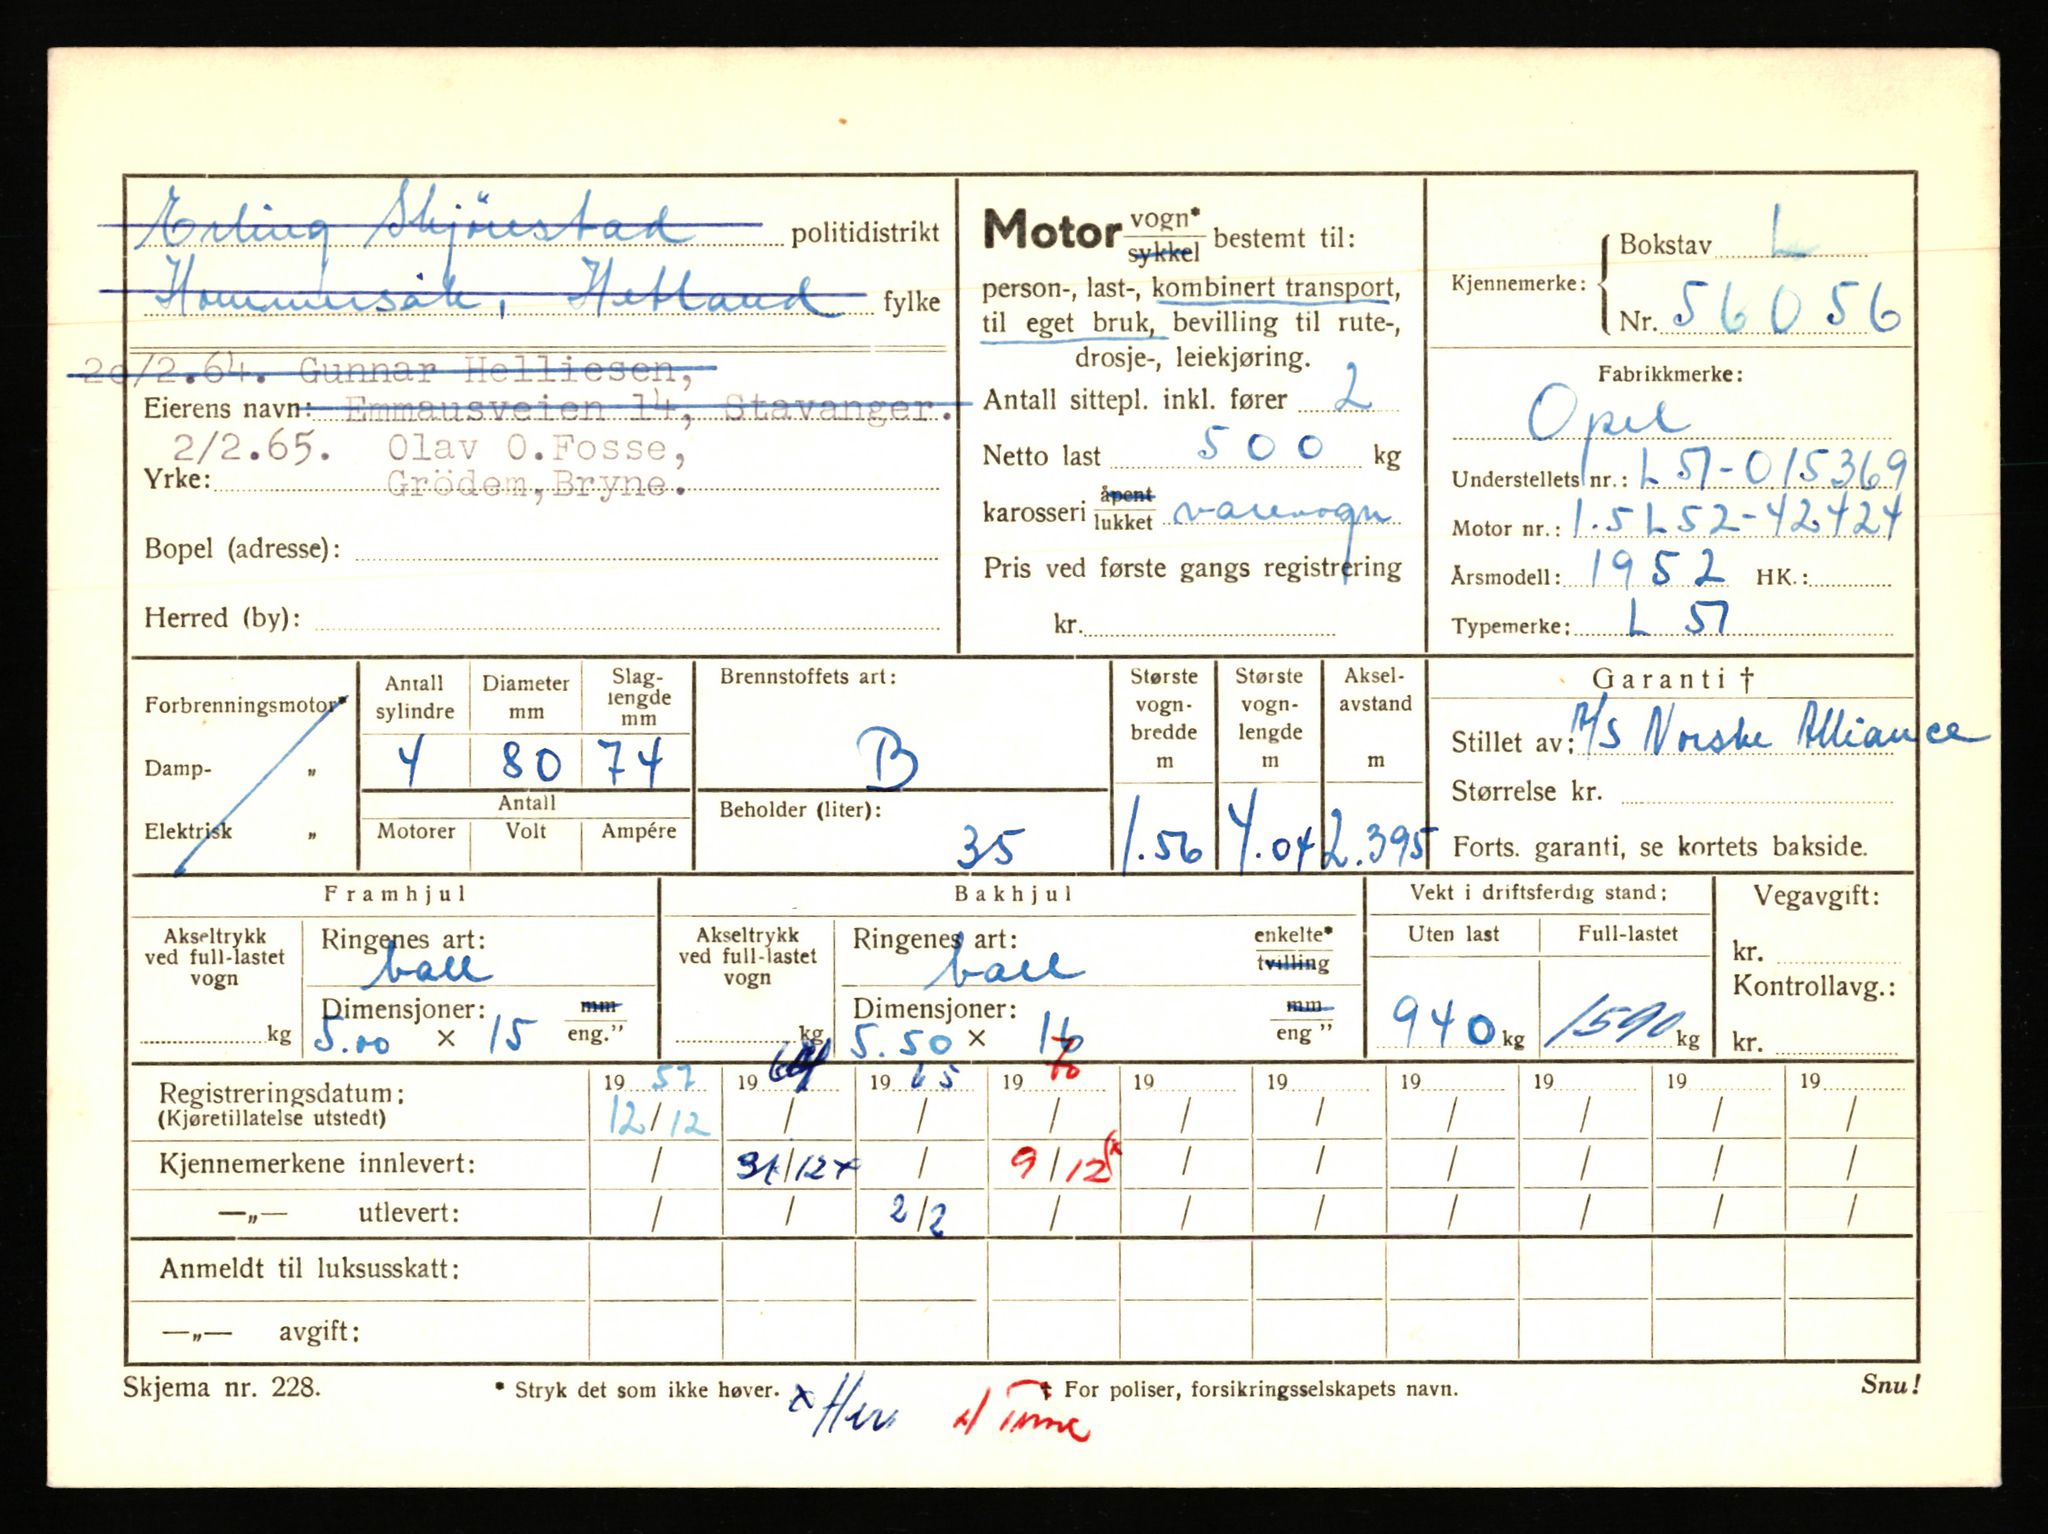 Erling Skjörestad politidistrikt
Hommersåk, Hetland fylke
2o/2.64. Gunnar Helliesen,
Eierens navn: Emmausveien 14, Stavanger.
2/2.65. Olav O.Fosse,
Yrke: Grödem,Bryne.
Bopel (adresse):
Herred (by):
Motor vogn*
sykkel bestemt til:
person-, last-, kombinert transport,
til eget bruk, bevilling til rute-,
drosje-, leiekjøring.
Antall sittepl. inkl. fører 2
Netto last 500 kg
karosseri åpent
lukket varevogn
Pris ved første gangs registrering
kr.
Kjennemerke: Bokstav L
Nr. 56056
Fabrikkmerke:
Opel
Understellets nr.: L51-015369
Motor nr.: 1.5L52-42424
Årsmodell: 1952 HK.:
Typemerke: L 51
Forbrenningsmotor*
Damp- „
Elektrisk „
Antall sylindre Diameter mm Slaglengde mm
4 80 74
Antall
Motorer Volt Ampére
Brennstoffets art:
B
Beholder (liter):
35
Største vognbredde m Største vognlengde m Akselavstand m
1.56 4.04 2.395
Garanti †
Stillet av: A/S Norske Alliance
Størrelse kr.
Forts. garanti, se kortets bakside.
Framhjul
Akseltrykk
ved full-lastet
vogn
kg
Ringenes art:
ball
Dimensjoner: mm
5.00 × 15 eng.”
Bakhjul
Akseltrykk
ved full-lastet
vogn
kg
Ringenes art: enkelte*
ball tvilling
Dimensjoner: mm
5.50 × 16 eng ”
Vekt i driftsferdig stand:
Uten last Full-lastet
940 kg 1590 kg
Vegavgift:
kr.
Kontrollavg.:
kr.
Registreringsdatum: 19 57 19 64 19 65 19 70 19 19 19 19 19 19
(Kjøretillatelse utstedt) 12/12 / / / / / / / / /
Kjennemerkene innlevert: / 31/12x / 9/12 / / / / / /
—„— utlevert: / / 2/2 / / / / / / /
Anmeldt til luksusskatt:
—„— avgift:
Skjema nr. 228. * Stryk det som ikke høver. † For poliser, forsikringsselskapets navn. Snu!
x Her